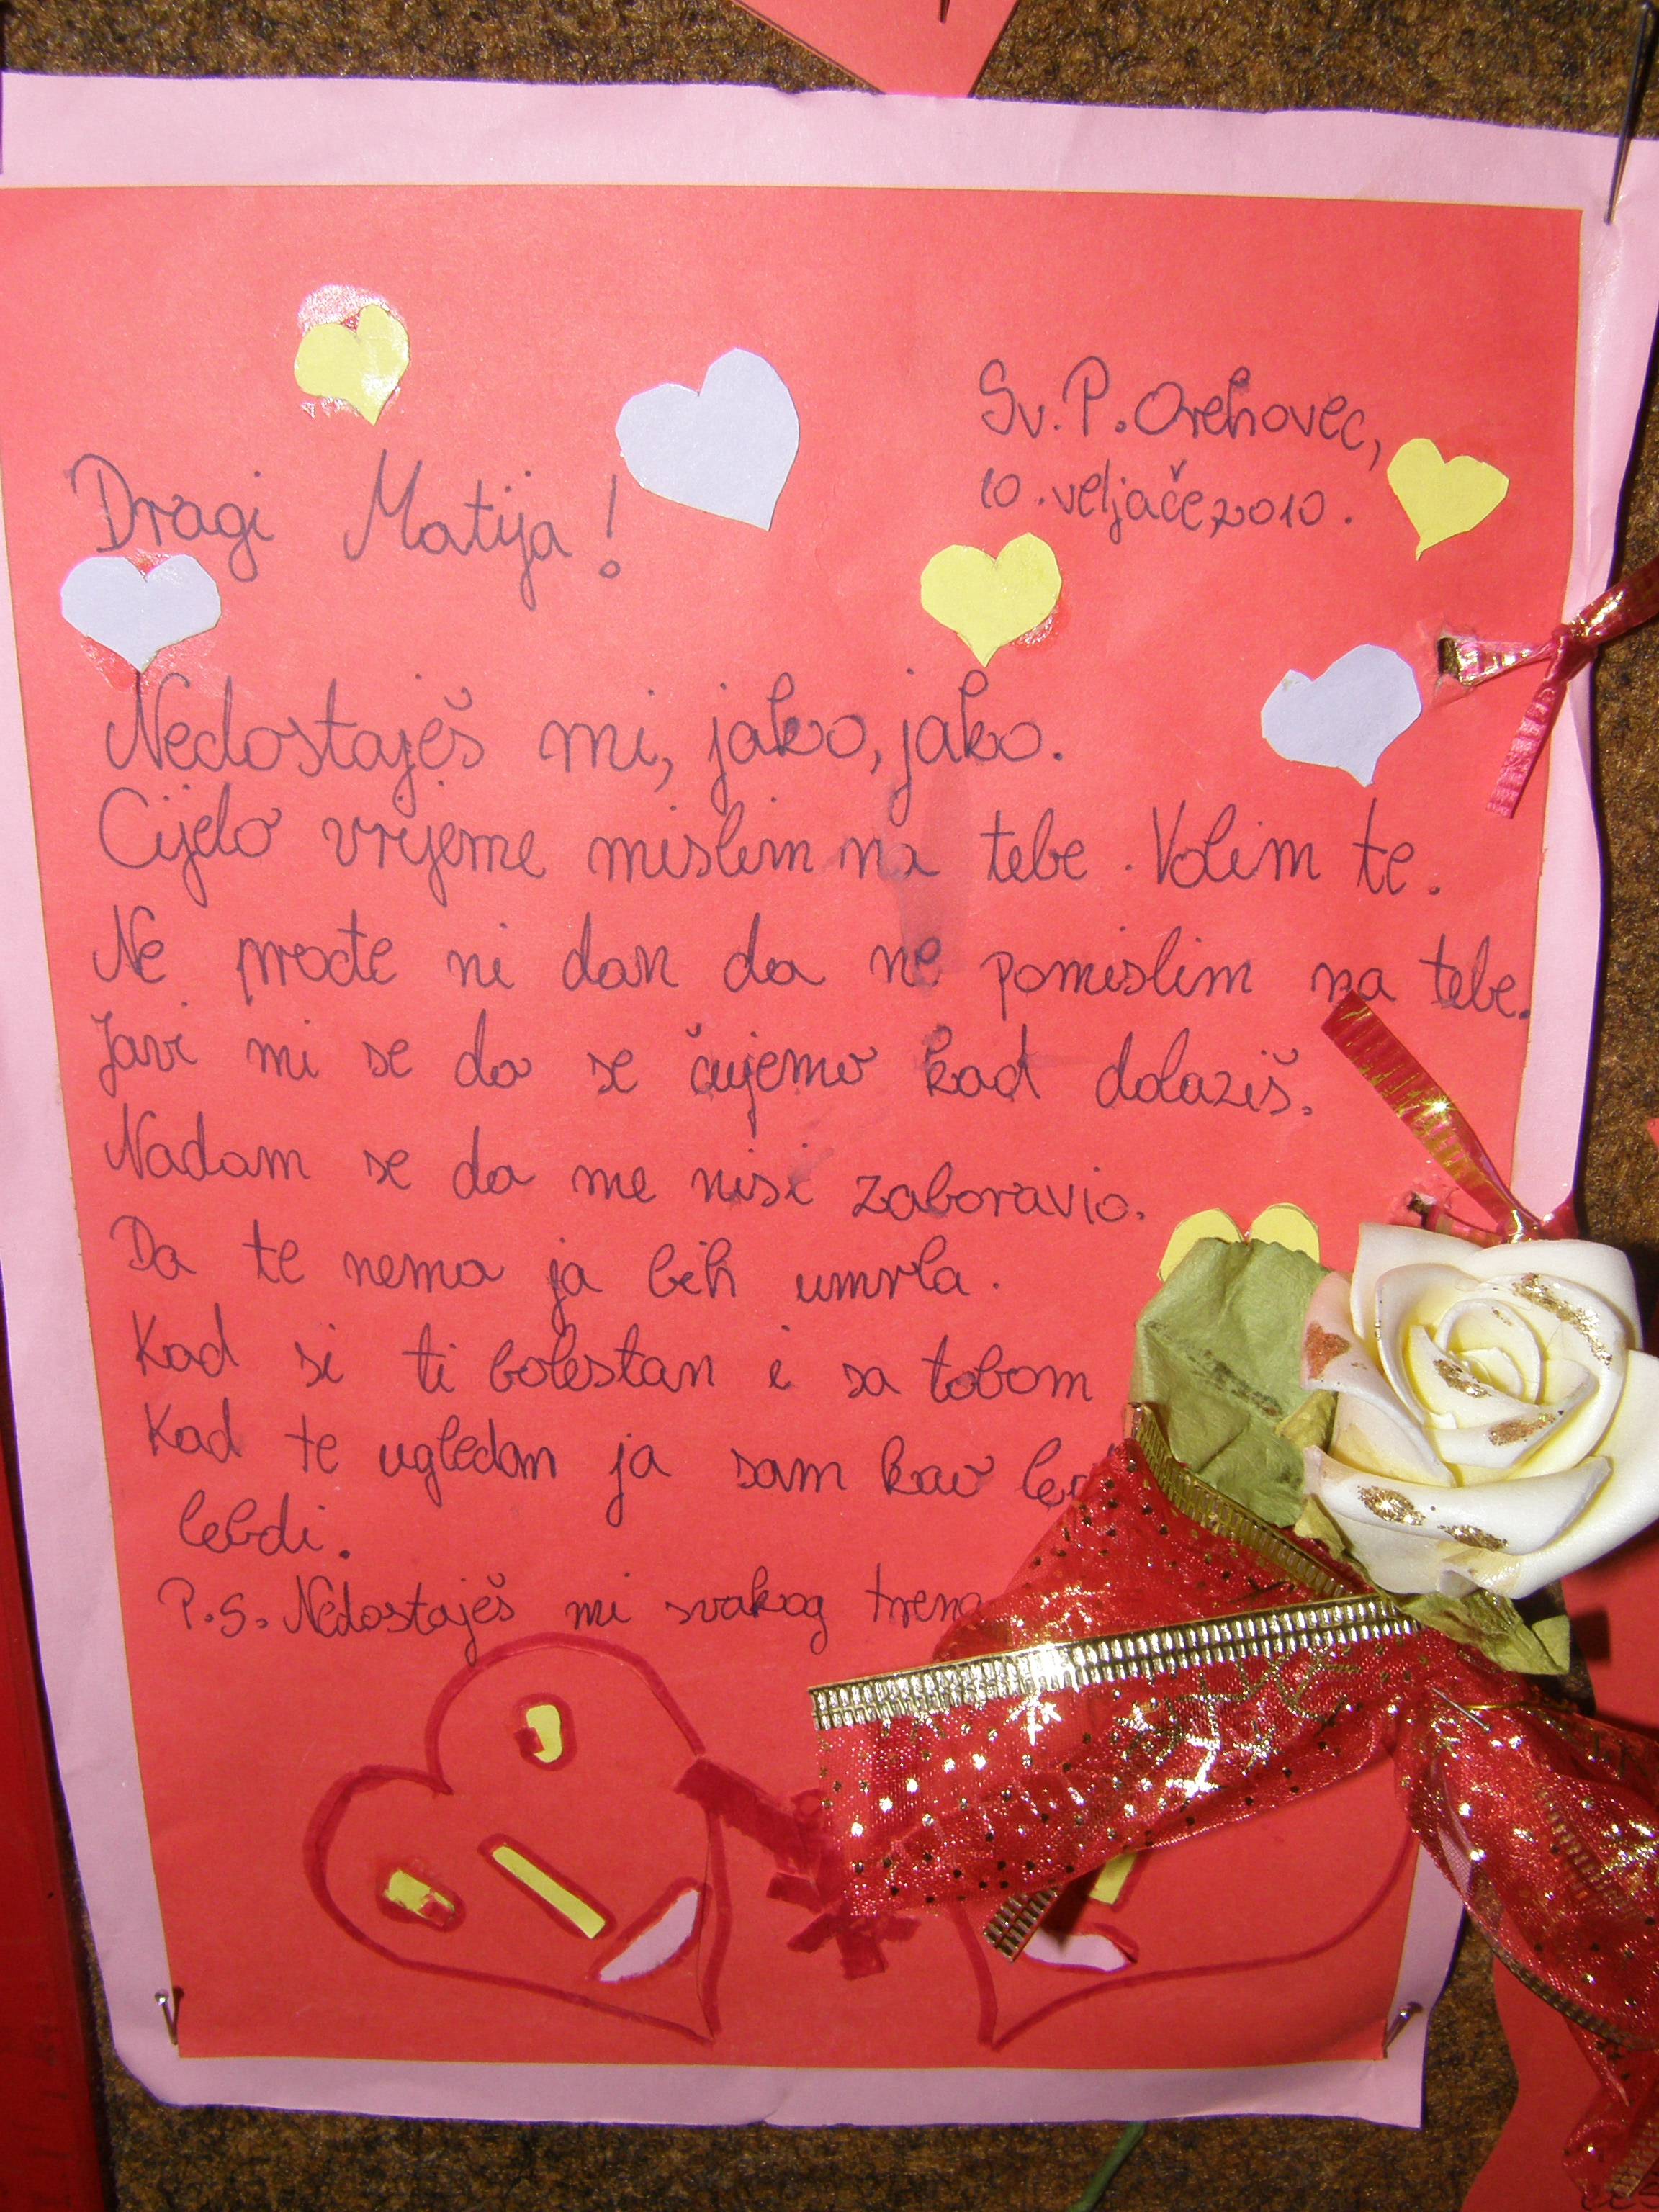 Sv. P. Orehovec,
10. veljače, 2010.
Dragi Matija!
Nedostaješ mi, jako, jako.
Cijelo vrijeme mislim na tebe. Volim te.
Ne prođe ni dan da ne pomislim na tebe.
Javi mi se da se čujemo kad dolaziš.
Nadam se da me nisi zaboravio.
Da te nema ja bih umrla.
Kad si ti bolestan i sa tobom
Kad te ugledam ja sam kao
lebdi.
P.S. Nedostaješ mi svakog